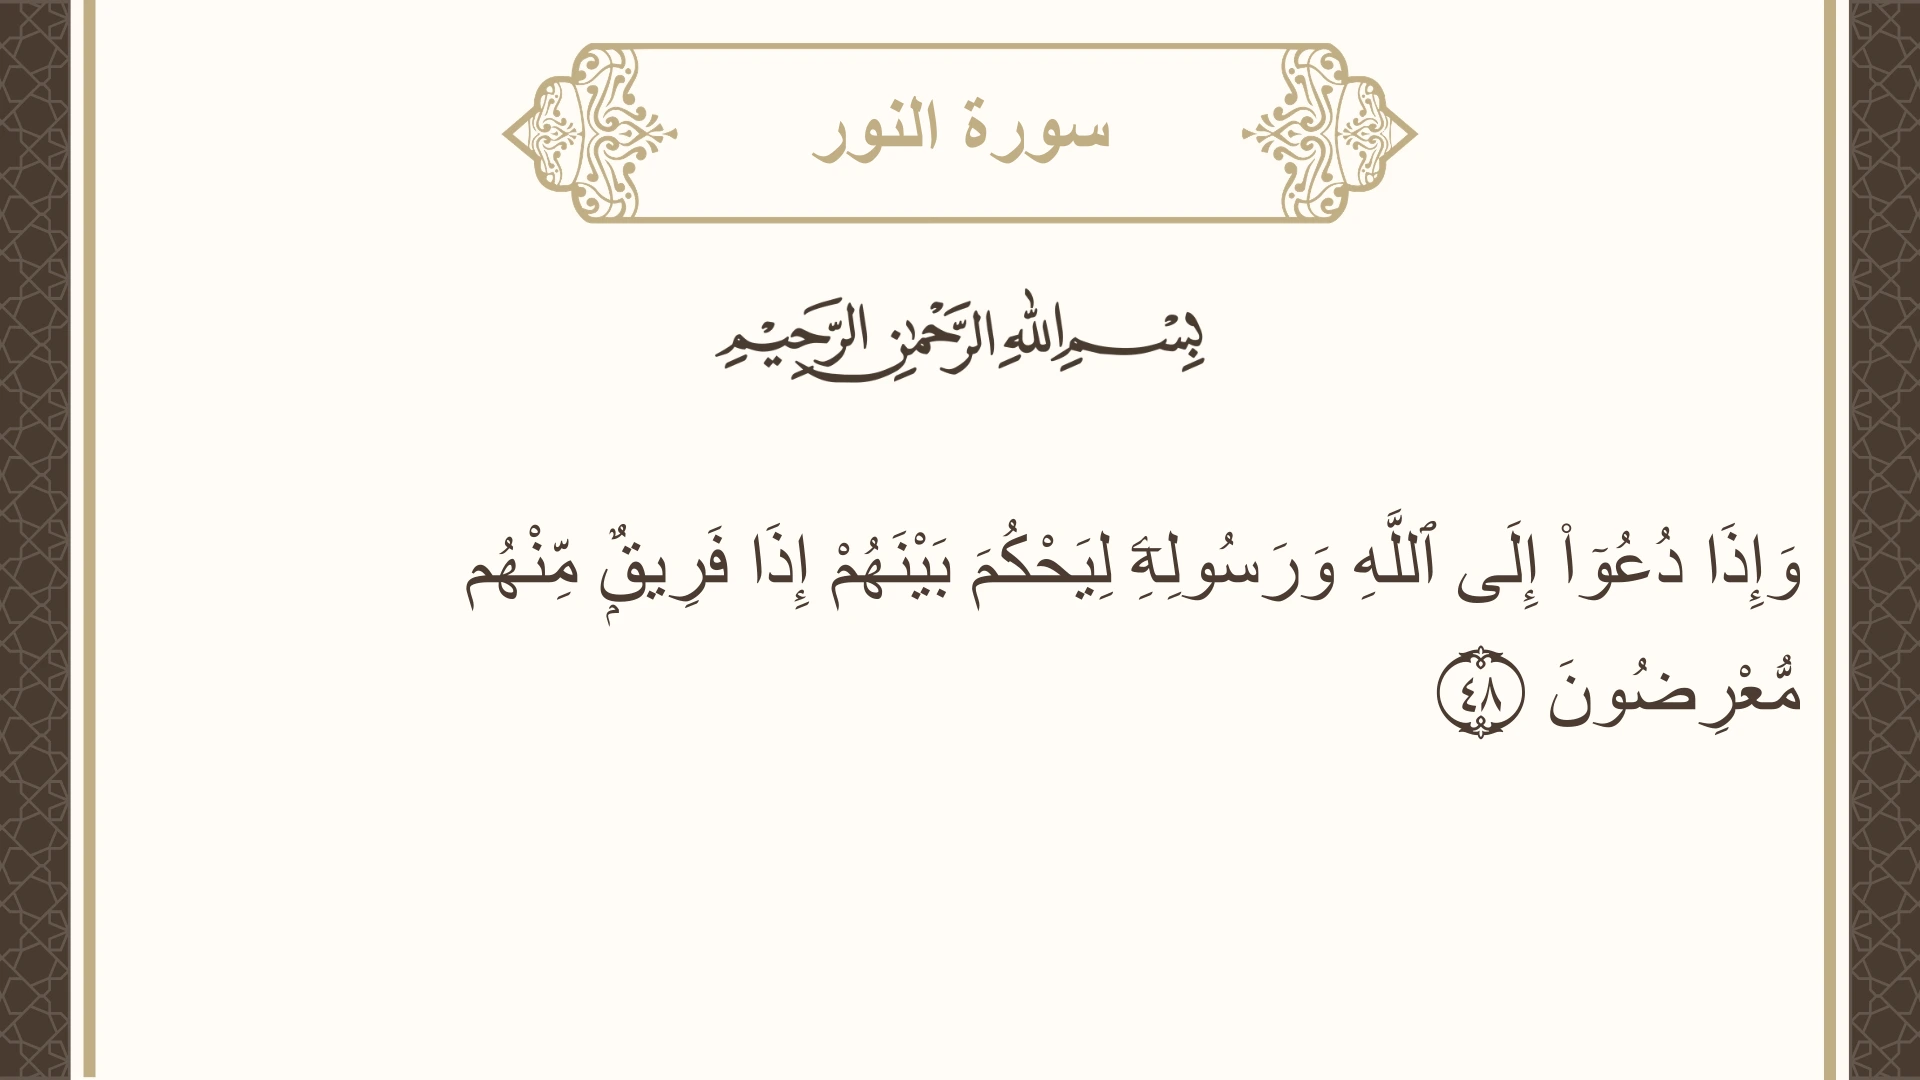 سورة النور
بِسْمِ اللهِ الرَّحْمٰنِ الرَّحِيْمِ
وَإِذَا دُعُوٓا۟ إِلَى ٱللَّهِ وَرَسُولِهِۦٓ لِيَحْكُمَ بَيْنَهُمْ إِذَا فَرِيقٌۭ مِّنْهُم
مُّعْرِضُونَ ٤٨